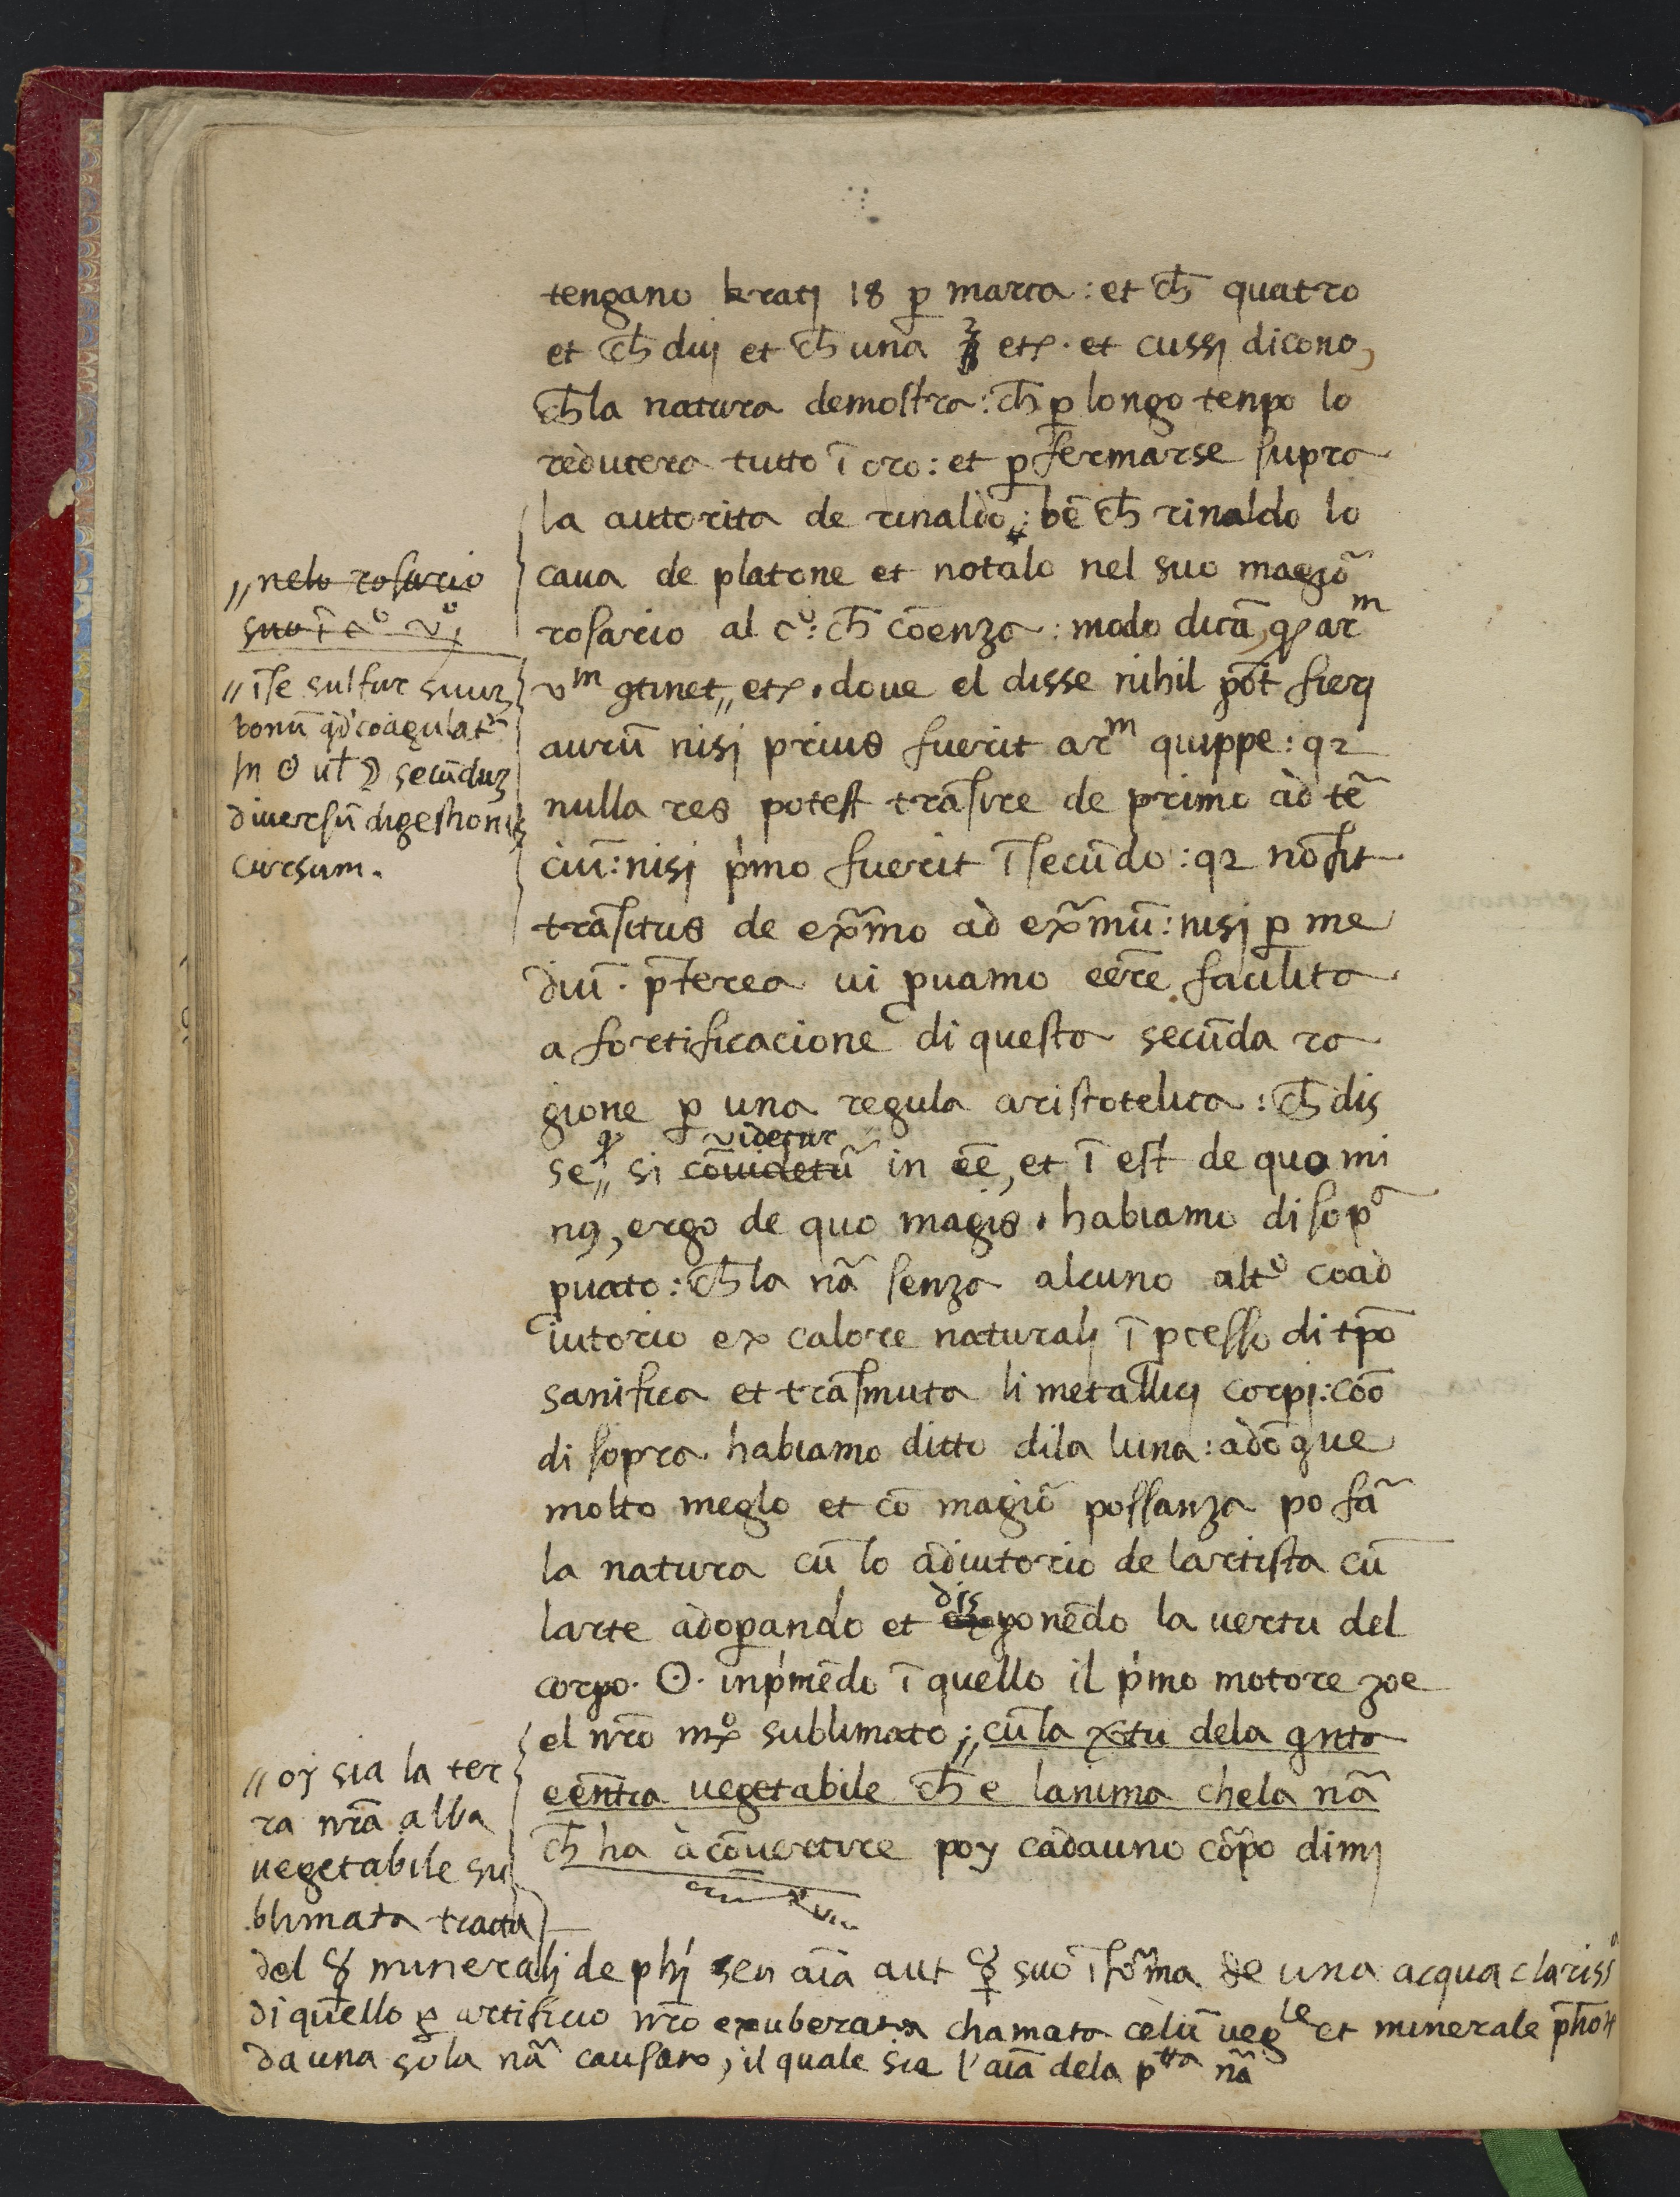 tengano krati 18 ꝑ marca: et cħ quatro
et cħ duj et cħ una ʒ etꝭ. et cussj dicono,
cħ la natura demostra: cħ ꝑ longo tenpo lo
reducera tutto ī oro: et ꝑ fermarse supra
la autorita de rinaldo: bē cħ rinaldo lo
caua de platone et notalo nel suo magiō
rosario al cº: cħ cōenza: modo dicā, ꝙ arᵐ
vᵐ ꝯtinet,, etꝭ. doue el disse nihil pōt fierj
aurū nisj prius fuerit arᵐ quippe: qꝛ
nulla res potest trāsire de primo ad te͂
ciū: nisj pͥmo fuerit ī secūdo: qꝛ nō fit
trāsitus de ex͂mo ad ex͂mū: nisj ꝑ me
diū. p̄terea ui ꝓuamo eēre faculta
a fortificacione di questa secūda ra
gione ꝑ una regula aristotelica: cħ dis
se,, ꝙ si cōuidetū videtur in eē, et ī est de quo mi
nꝯ, ergo de quo magis. habiamo di sopª
ꝓuato: cħ la nā senza alcuno altº coad
iutorio ex calore naturalj ī ꝓcesso di tp̄o
sanifica et trāsmuta li metallicj corpj: cōo
di sopra habiamo ditto dila luna: adōque
molto meglo et cō magiō possanza po fā
la natura cū lo adiutorio de lartista cū
larte adoꝑando et disponēdo la uertu del
corpo. ☉. inpͥmēdo ī quello il pͥmo motore zoe
el nr̄o mꝝº sublimato;,, cū la x̄tu dela qnta
eēntia uegetabile cħ e lanima che la nā
cħ ha a cōuertire poy cadauno cōꝑo dimj
,, nelo rosario
suo ī cº vjº
,, iste sulfur suuꝫ
bonū qd̄ coagulat᷑
in ☉ ul̄ ☽ secūduꝫ
diuersū digestionis
cursum.
,, oy sia la ter
ra nr̄a alba
uegetabile su
blimata tracta
del ☿ mineralj de phj seu aīa aut ☿ suo ī fōma de una acqua clarissª
di quello ꝑ artificio nr̄o exuberata chamata celū uegˡᵉ et minerale ph̄oꝝ
da una sola nā causato, il quale sia l'aīa dela pᵗᵗᵃ nā